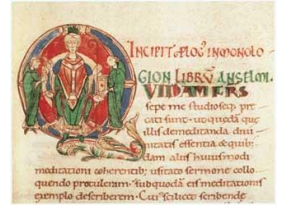 INCIPIT PLOG' IN MONOLO
GION LIBRV ANSELMI.
QVIDAM FRS
sepe me studioseq; pre
cati sunt ut quedā que
illis de meditanda diui
nitatis essentia & quib;
dam aliis huiusmodi
meditationi coherentib; usitato sermone collo
quendo protuleram. sub quodā eis meditationis
exemplo describerem. Cui' scilicet scribende